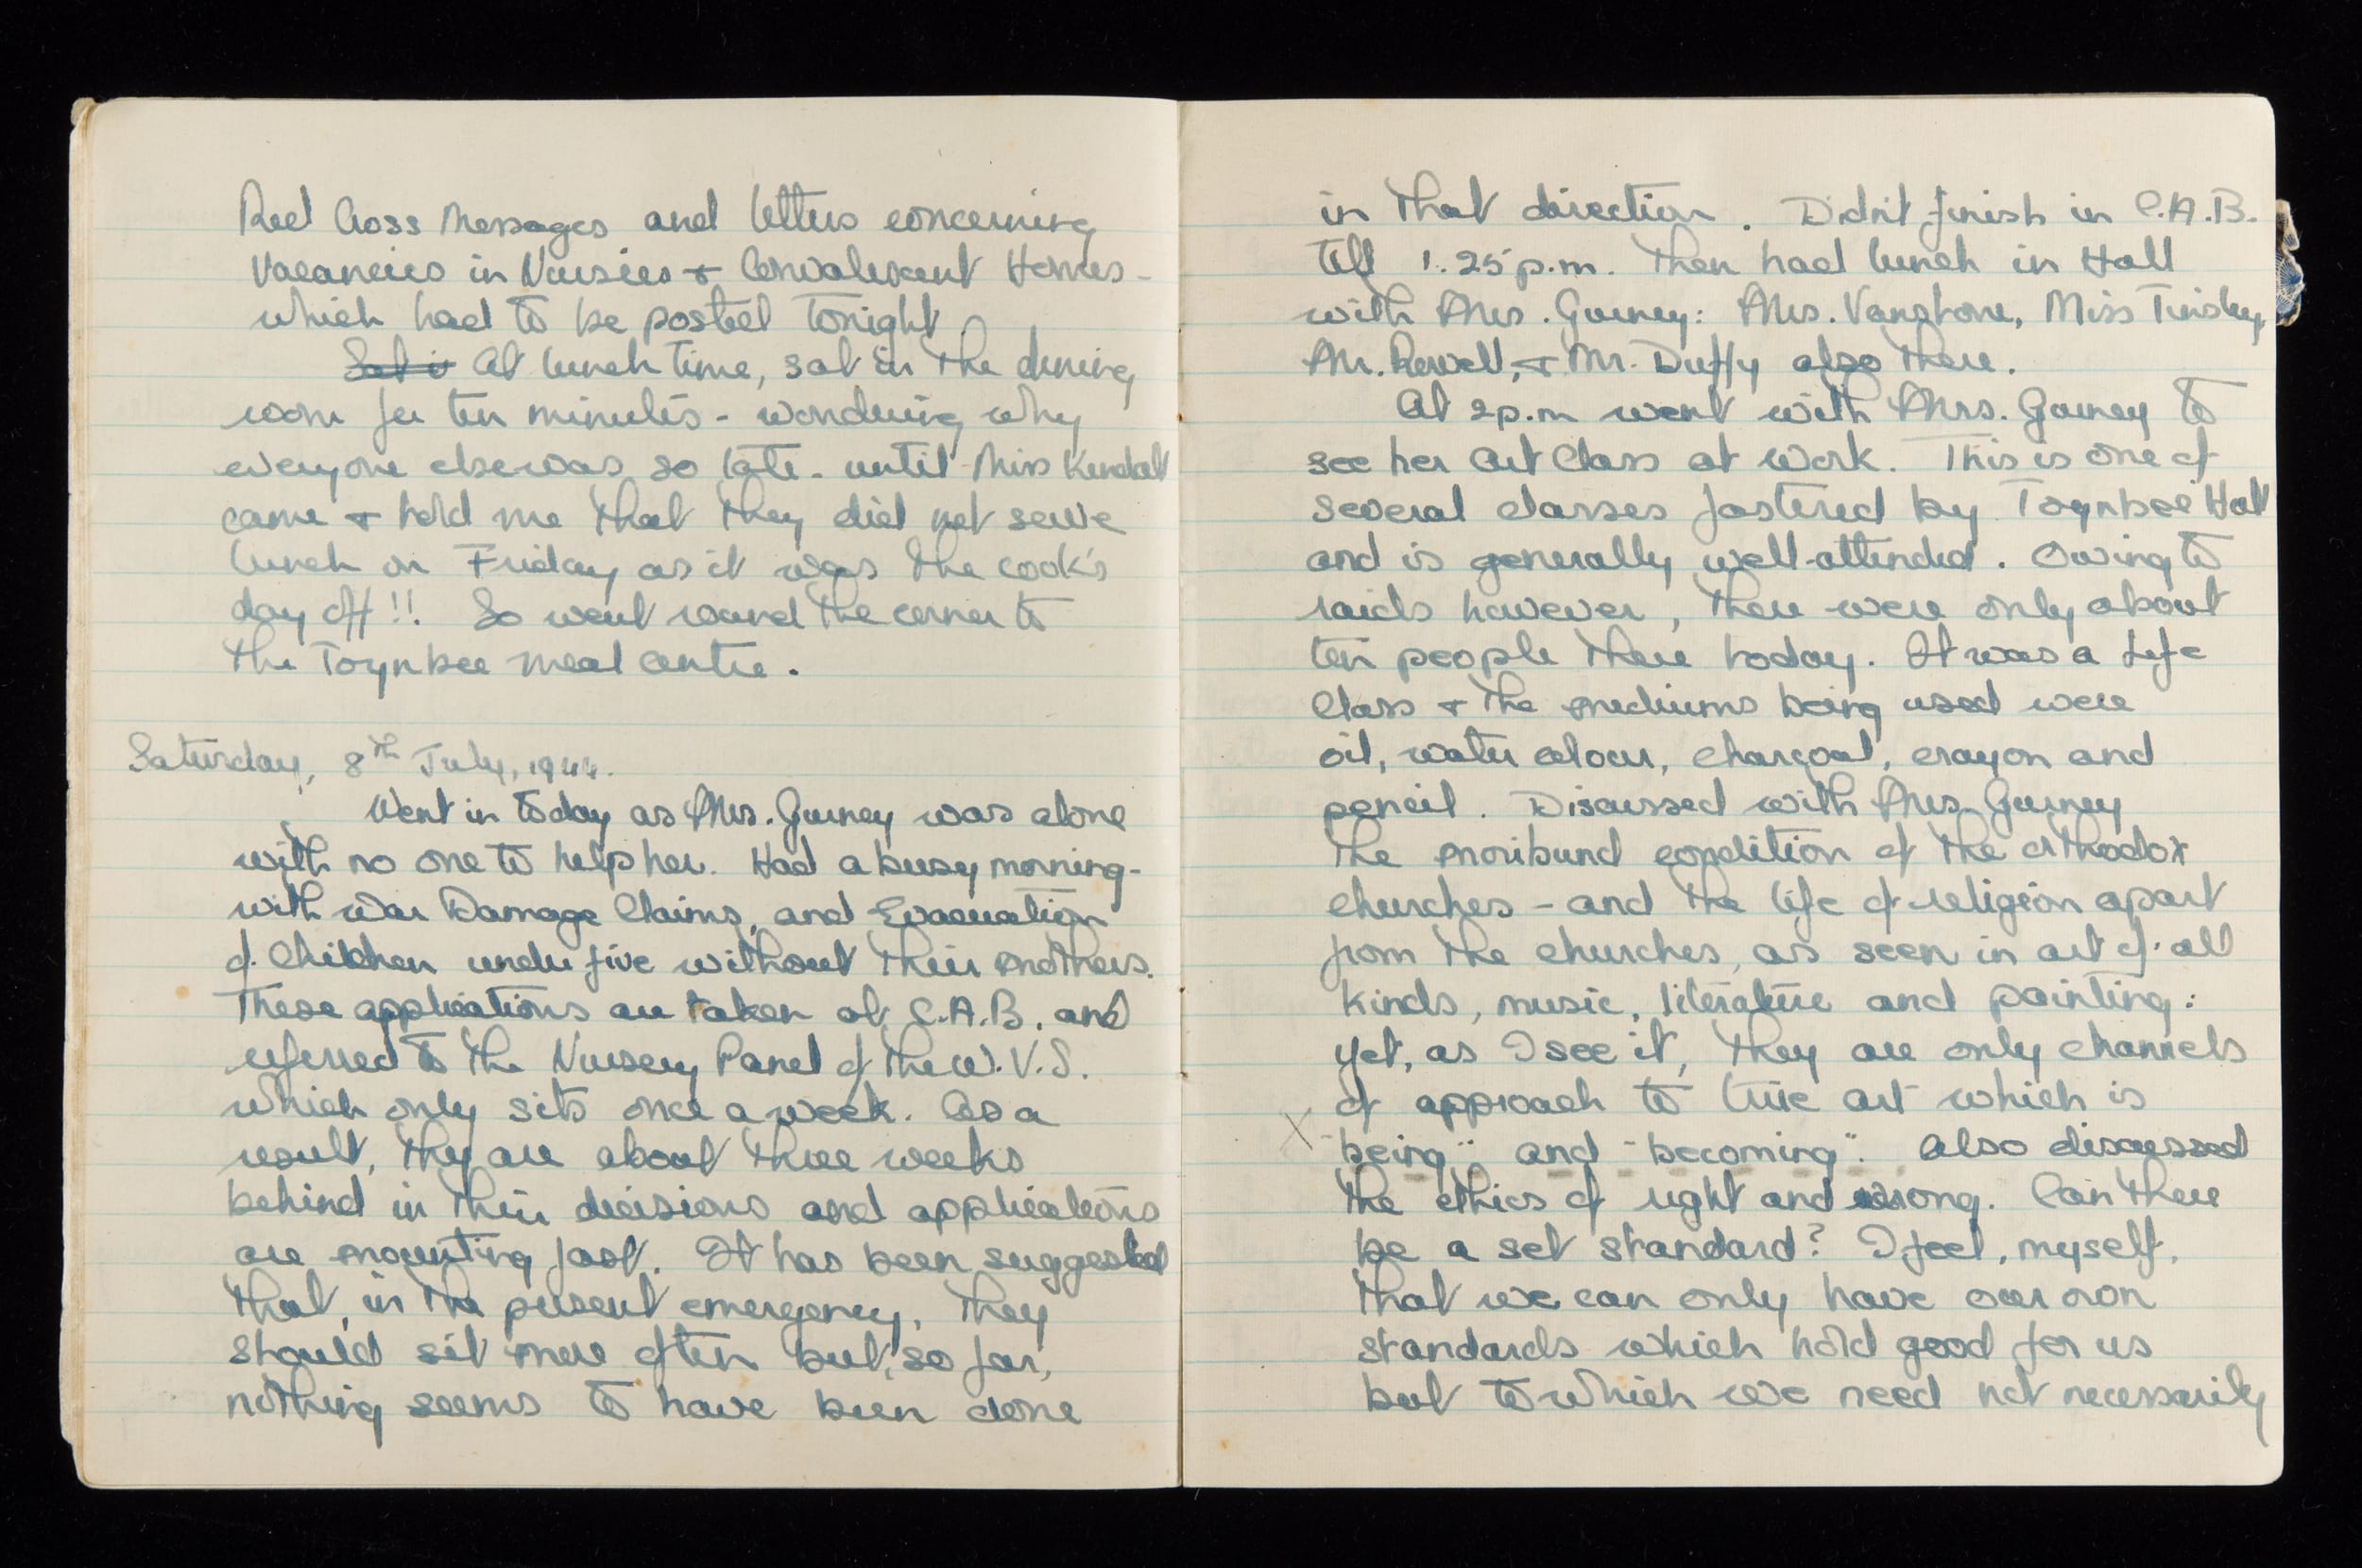 Red Cross Messages and letters concerning
vacancies in Nurseries + Convalescent Homes -
which had to be posted tonight.
Sat i At lunch time, sat in the dining
room for ten minutes - wondering why
everyone else was so late - until Miss Kendall
came + told me that they did not serve
lunch on Friday as it was the cook's
day off!! So went round the corner to
the Toynbee meal centre.
Saturday, 8th July, 1944.
Went in today as Mrs. Gurney was alone
with no one to help her. Had a busy morning -
with War Damage Claims, and Evacuation
of Children under five without their mothers.
These applications are taken at C.A.B. and
referred to the Nursery Panel of the W.V.S.
which only sits once a week. As a
result, they are about three weeks
behind in their decisions and applications
are mounting fast. It has been suggested
that, in the present emergency, they
should sit more often but, so far,
nothing seems to have been done
in that direction. Didn't finish in C.A.B.
till 1.25 p.m. Then had lunch in Hall
with Mrs. Gurney: Mrs. Vanstone, Miss Tinsley,
Mr. Rowell, + Mr. Duffy also there.
At 2 p.m went with Mrs. Gurney to
see her Art Class at work. This is one of
several classes fostered by Toynbee Hall
and is generally well-attended. Owing to
raids however, there were only about
ten people there today. It was a Life
Class + the mediums being used were
oil, water colour, charcoal, crayon and
pencil. Discussed with Mrs. Gurney
the moribund condition of the orthodox
churches - and the life of religion apart
from the churches, as seen in art of all
kinds, music, literature and painting:
yet, as I see it, they are only channels
of approach to true art which is
X "being" and "becoming". Also discussed
the ethics of right and wrong. Can there
be a set standard? I feel, myself,
that we can only have our own
standards which hold good for us
but to which we need not necessarily